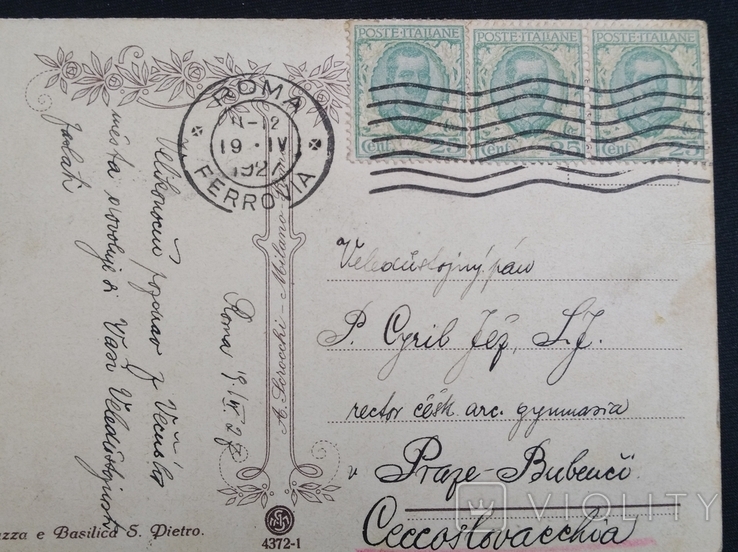 POSTE·ITALIANE
POSTE·ITALIANE
POSTE·ITALIANE
Cent. 25
Cent. 25
Cent. 25
ROMA
11-12
19·IV
1927
FERROVIA
Velikonoční pozdrav z Věčného
města dovoluje si Vaší Velebnosti
zaslati
Roma 19/IV. 27
A. Scrocchi - Milano - Roma
Veledůstojný pán
P. Cyril Jež, S.J.
rector česk. arc. gymnasia
v Praze-Bubenči
Ceccoslovacchia
azza e Basilica S. Pietro.
4372-1
VIOLITY